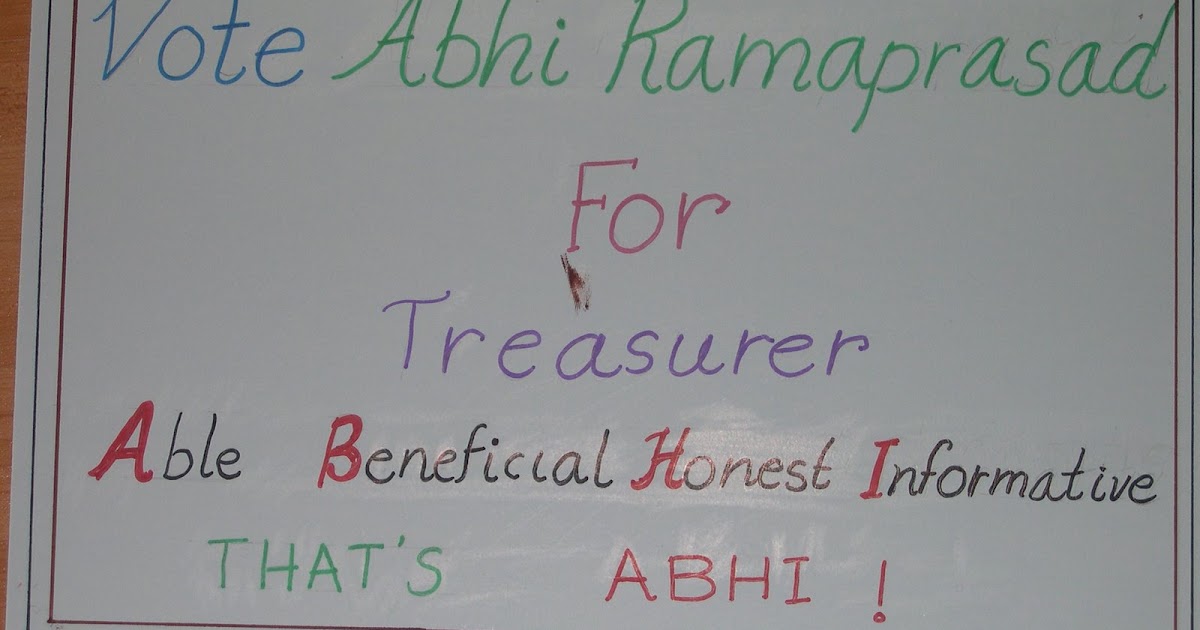 Vote Abhi Ramaprasad
For
Treasurer
Able Beneficial Honest Informative
THAT'S ABHI !